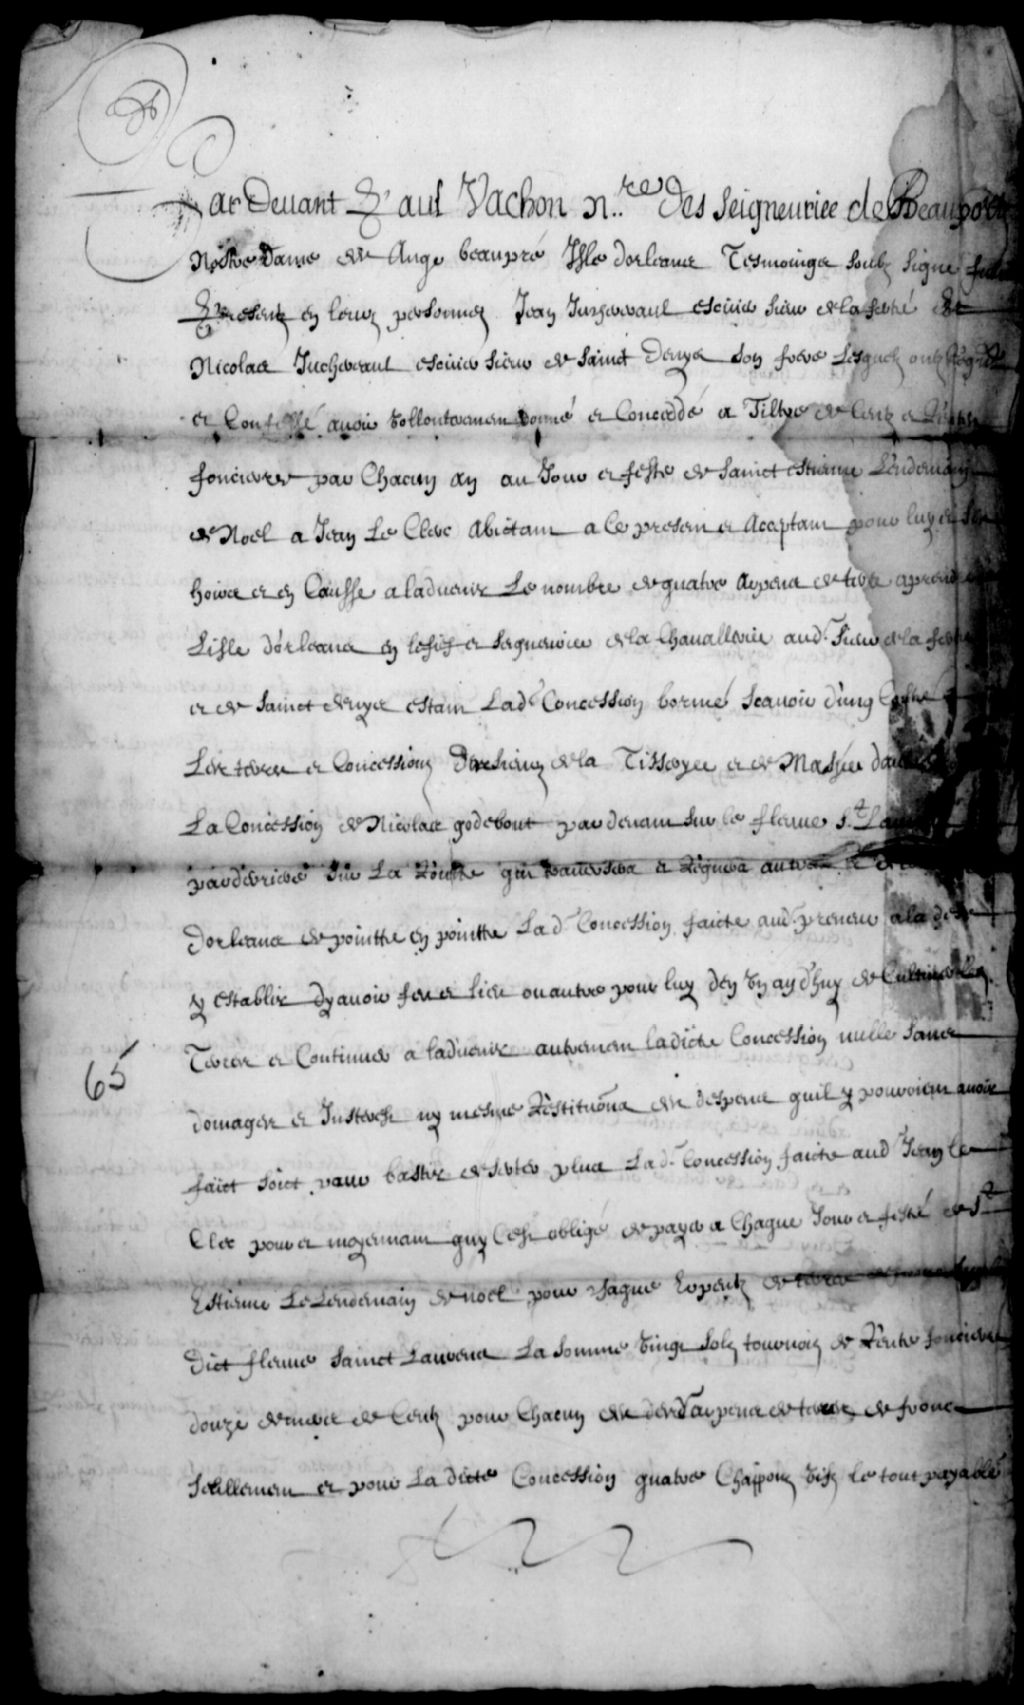 Par Devant Paul Vachon n.re Des Seigneuries de Beauport
Nostre Dame des Ange beaupré Isle dorleans Tesmoings soubz signe furent
Presents en leurs personnes Jean Juchereaul escuier sieur de la ferté Et
Nicolas Juchereaul escuier sieur de sainct denys son frere Lesquelz ont
et Confessé avoir vollontairemen donné et Conceddé a Tiltre de Cens et Rentes
foncieres par Chacun an au Jour et feste de sainct estienne Lendemain
de Noel a Jean Le Clerc Abictam a ce presem et Acceptam pour luy et ses
hoirs et en Causse a ladvenir Le nombre de quatre Arpens de terre a prendre
Lisle dorleans en lefief et segneurie de la Chevallerie aud. sieur de la ferté
et de sainct denys estam Lad. Concession bornée scavoir d'ung Costé
Les terres et Concessions Des sieurs de la Tisserye et de
La Concession de Nicolas godebout par devam sur le fleuve s.t
par derriere sur La Routte qui traversera et Regnera
dorleans de pointte en pointte Lad. Concession faicte aud. preneur a la
y establir dyavoir feu et lieu ou autre pour luy dEn Un an d'huy de Cultiver les
Terres et Continuer a ladvenir autremen ladicte Concession nulle sans
domages et Interesh ny mesme Restitu͠on des despens quil y pouroiem avoir
faict soict pour bastir deserter plus Lad. Concession faicte aud Jean le
Clec pour et moyennam quy Cesh obligé de payer a Chaque Jour et feste de s.t
Estienne Le Lendemain de noel pour
dict fleuve sainct Laurens La somme Vingt solz tournois de Rente fonciere
douze deniers de Cens pour Chacun des dicts arpens de terre de fronc
seullemen et pour La dicte Concession quatre Chappons Vifz le tout payable
65